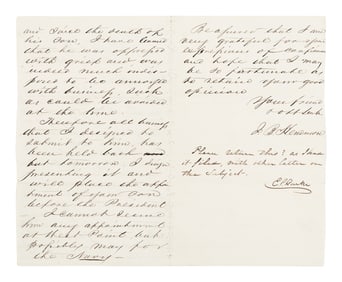 and since the death of
his son, I have learned
that he was oppressed
with grief and was
indeed much indis-
posed to be annoyed
with business, such
as could be avoided
at the time.
Therefore all things
that I desired to
submit to him, has
been held back
but tomorrow I
presenting it and
will place the appoint
ment of your son
before the President
I cannot
him any appointment
at West Point but
possibly may for
the Navy
Be assured that I am
very grateful for your
expressions of confidence
and hope that I may
be so fortunate as
to retain your good
opinion
Your friend
& obt Servt
J. B. Henderson
Please return this as soon
with other letters on
this subject.